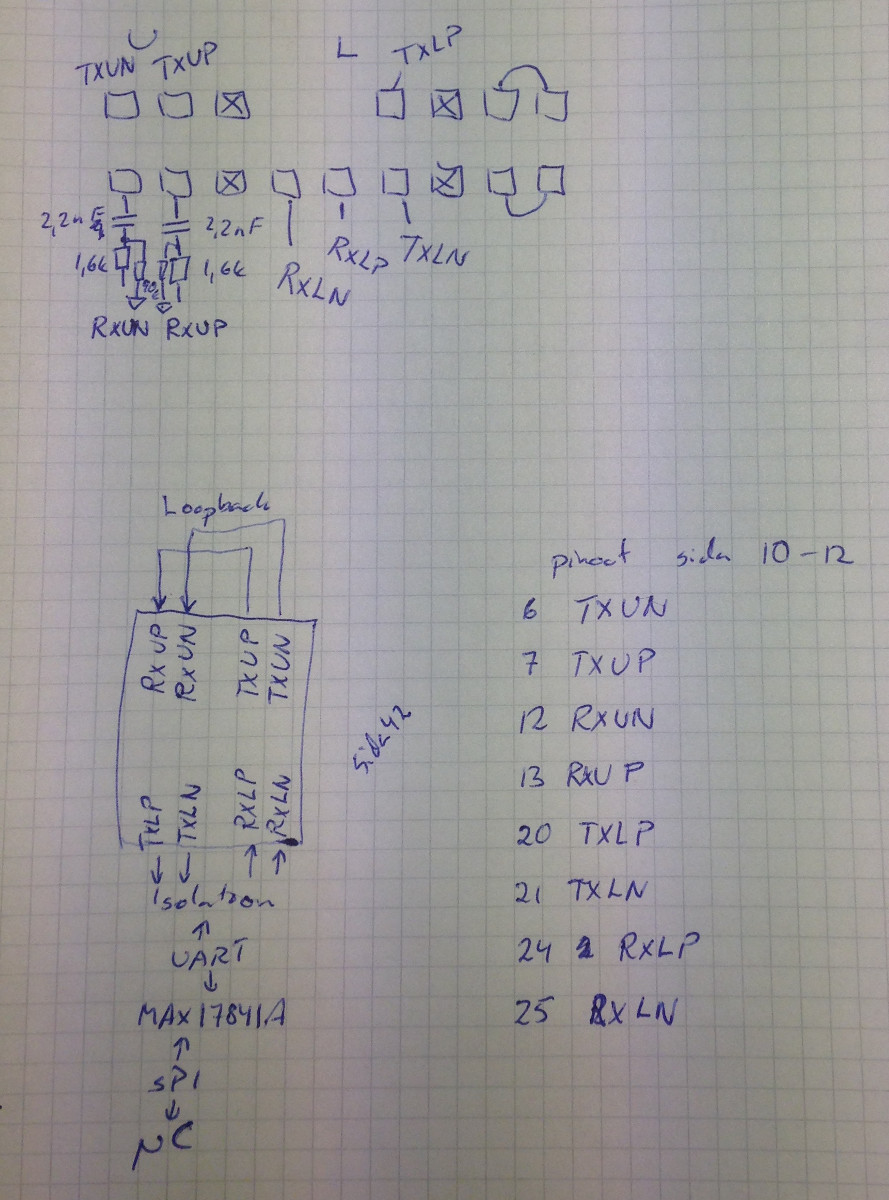 U
TXUN TXUP
L TXLP
2,2nF 2,2nF
1,6k 1,6k
RXLN RXLP TXLN
RXUN RXUP
Loopback
pinout sida 10-12
RXUP RXUN TXUP TXUN
TXLP TXLN RXLP RXLN
Sida 42
Isolation
UART
MAX17841A
SPI
µC
6 TXUN
7 TXUP
12 RXUN
13 RXUP
20 TXLP
21 TXLN
24 RXLP
25 RXLN